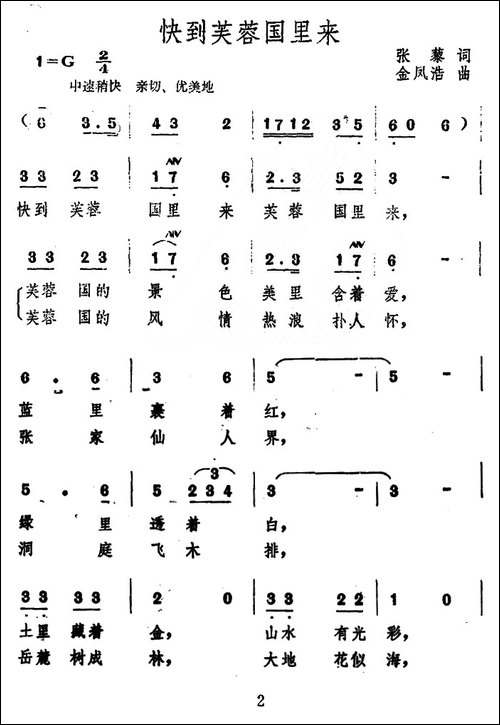 快到芙蓉国里来
1=G 2/4
张藜 词
金凤浩 曲
中速稍快 亲切、优美地
( 6 3.5 | 4 3 2 | 1712 35 | 60 6 )
33 23 | 17 6 | 2.3 52 | 3 - |
快到 芙蓉 国里 来 芙蓉 国里 来,
33 23 | 17 6 | 2.3 17 | 6 - |
芙蓉 国的 景 色 美里 含着 爱,
芙蓉 国的 风 情 热浪 扑人 怀,
6 . 6 | 3 6 | 5 - | 5 - |
蓝 里 裹 着 红,
张 家 仙 人 界,
5 . 6 | 5 234 | 3 - | 3 - |
绿 里 透 着 白,
洞 庭 飞 木 排,
33 33 | 2 0 | 33 22 | 1 0 |
土里 藏着 金, 山水 有光 彩,
岳麓 树成 林, 大地 花似 海,
2